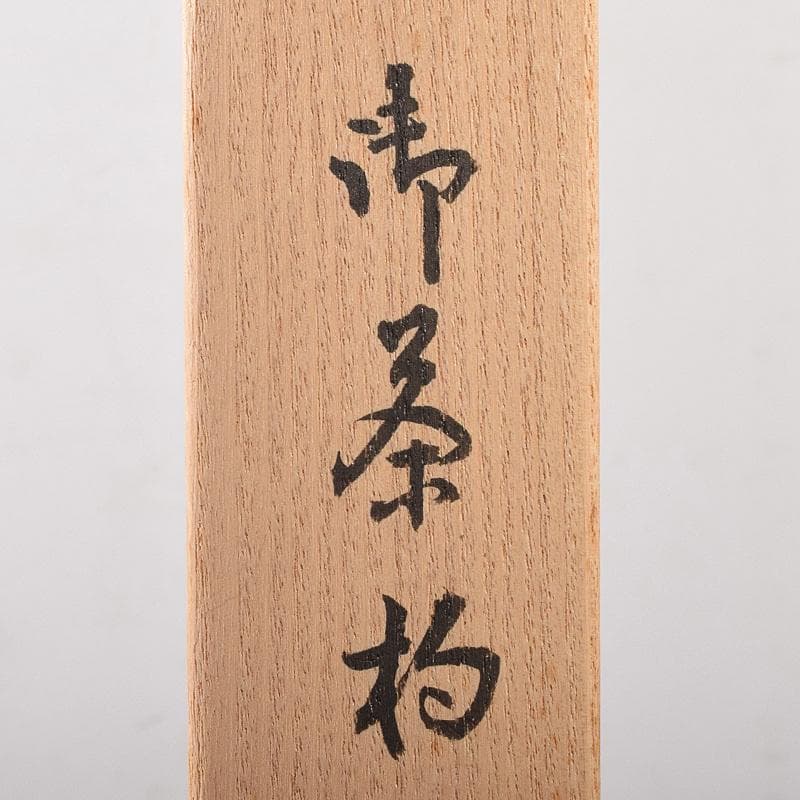 御茶杓